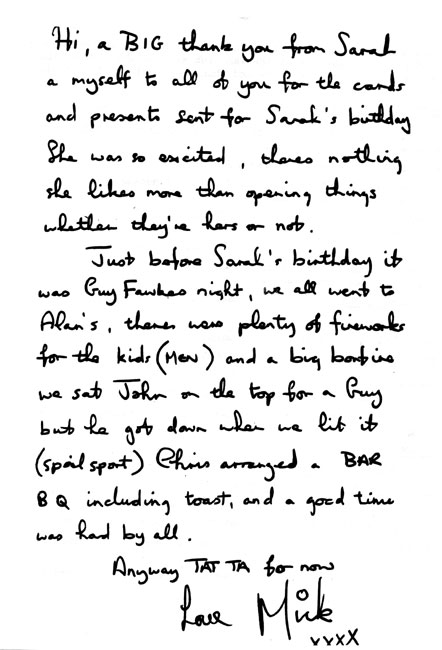 Hi, a BIG thank you from Sarah
a myself to all of you for the cards
and presents sent for Sarah's birthday
She was so excited, theres nothing
she likes more than opening things
whether they're hers or not.
Just before Sarah's birthday it
was Guy Fawkes night, we all went to
Alan's, there were plenty of fireworks
for the kids (MEN) and a big bonfire
we sat John on the top for a Guy
but he got down when we lit it
(spoil sport) Chris arranged a BAR
B Q including toast, and a good time
was had by all.
Anyway TAT TA for now
Love Mick
xxxx